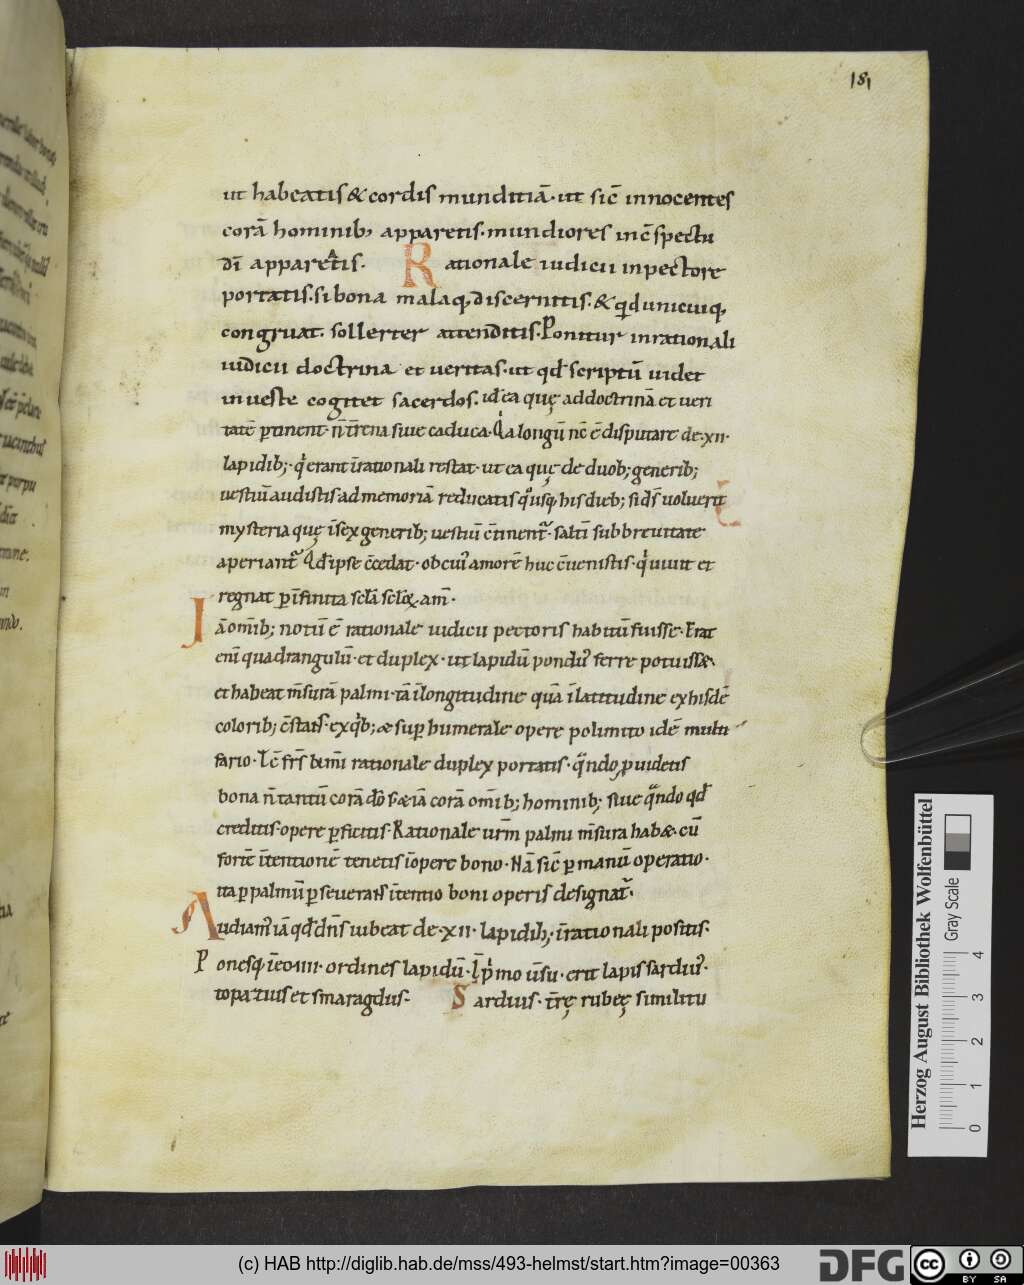 181
ut habeatis & cordis munditiā· ut sic̄ innocentes
corā hominib; apparetis· mundiores in c̄spectu
dī appareatis· Rationale iudicii in pectore
portatis· si bona malaq; discernitis· & qd unicuiq;
congruat· sollerter attenditis· Ponitur in rationali
iudicii doctrina et ueritas· ut qd scriptū uidet
in ueste cogitet sacerdos· id ea quę ad doctrinā et ueri
tatē ptinent· n̄ t̄rena siue caduca· Qa longū nc̄ ē disputare de·xii·
lapidib;· qi erant ī rationali restat· ut ea quę de duob; generib;
uestiū audistis ad memoriā reducatis qusq his dieb; si ds̄ uoluerit
mysteria quę ī sex generib; uestiū c̄tinent· saltī sub breuitate
aperiant· Qd ipse c̄cedat· ob cui amorē huc c̄uenistis· qi uiuit et
regnat p īfinita scła scłoꝝ am̄·
Iā om̄ib; notū ē rationale iudicii pectoris habitū fuisse· Erat
enī quadrangulū· et duplex· ut lapidū pondus ferre potuiss&·
et habeat m̄surā palmi· tā ī longitudine quā ī latitudine ex hisdē
colorib; c̄stans· ex qib; & sup humerale opere polimito idē multi
fario· Tc̄ frs̄ bm̄i rationale duplex portatis· qndo puidetis
bona n̄ tantū corā dō s; & iā corā om̄ib; hominib; siue qndo qd
creditis· opere pficitis· Rationale urm̄ palmi m̄sura hab&· cū
fortē ītentionē tenetis ī opere bono· Nā sic̄ p manū operatio·
ita p palmū pseuerans ītentio boni operis designat·
Audiam iā qd dn̄s iubeat de·xii· lapidib; ī rationali positis·
Ponesq; ī eo·iiii· ordines lapidū· Ī pimo ūsu· erit lapis sardius·
topazius et smaragdus· Sardius· t̄rę rubeę similitu
Herzog August Bibliothek Wolfenbüttel
Gray Scale
0 1 2 3 4
(c) HAB http://diglib.hab.de/mss/493-helmst/start.htm?image=00363
DFG
cc
BY SA